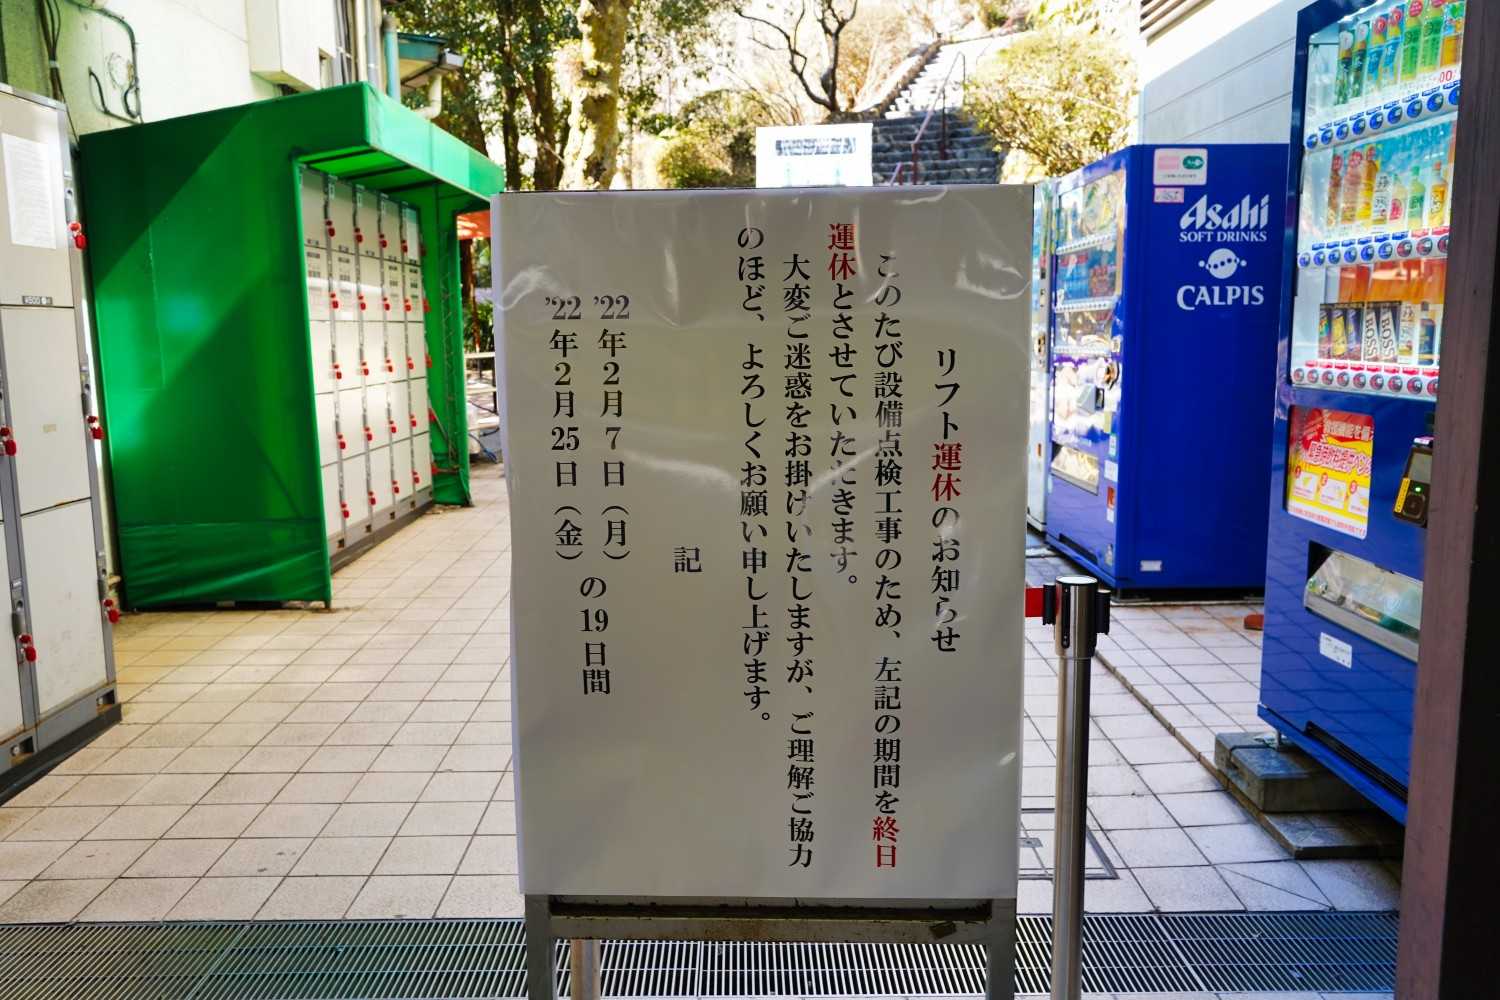 リフト運休のお知らせ
このたび設備点検工事のため、左記の期間を終日
運休とさせていただきます。
大変ご迷惑をお掛けいたしますが、ご理解ご協力
のほど、よろしくお願い申し上げます。
記
’22年2月7日（月）
’22年2月25日（金）
の19日間
Asahi
SOFT DRINKS
CALPIS
BOSS
BOSS